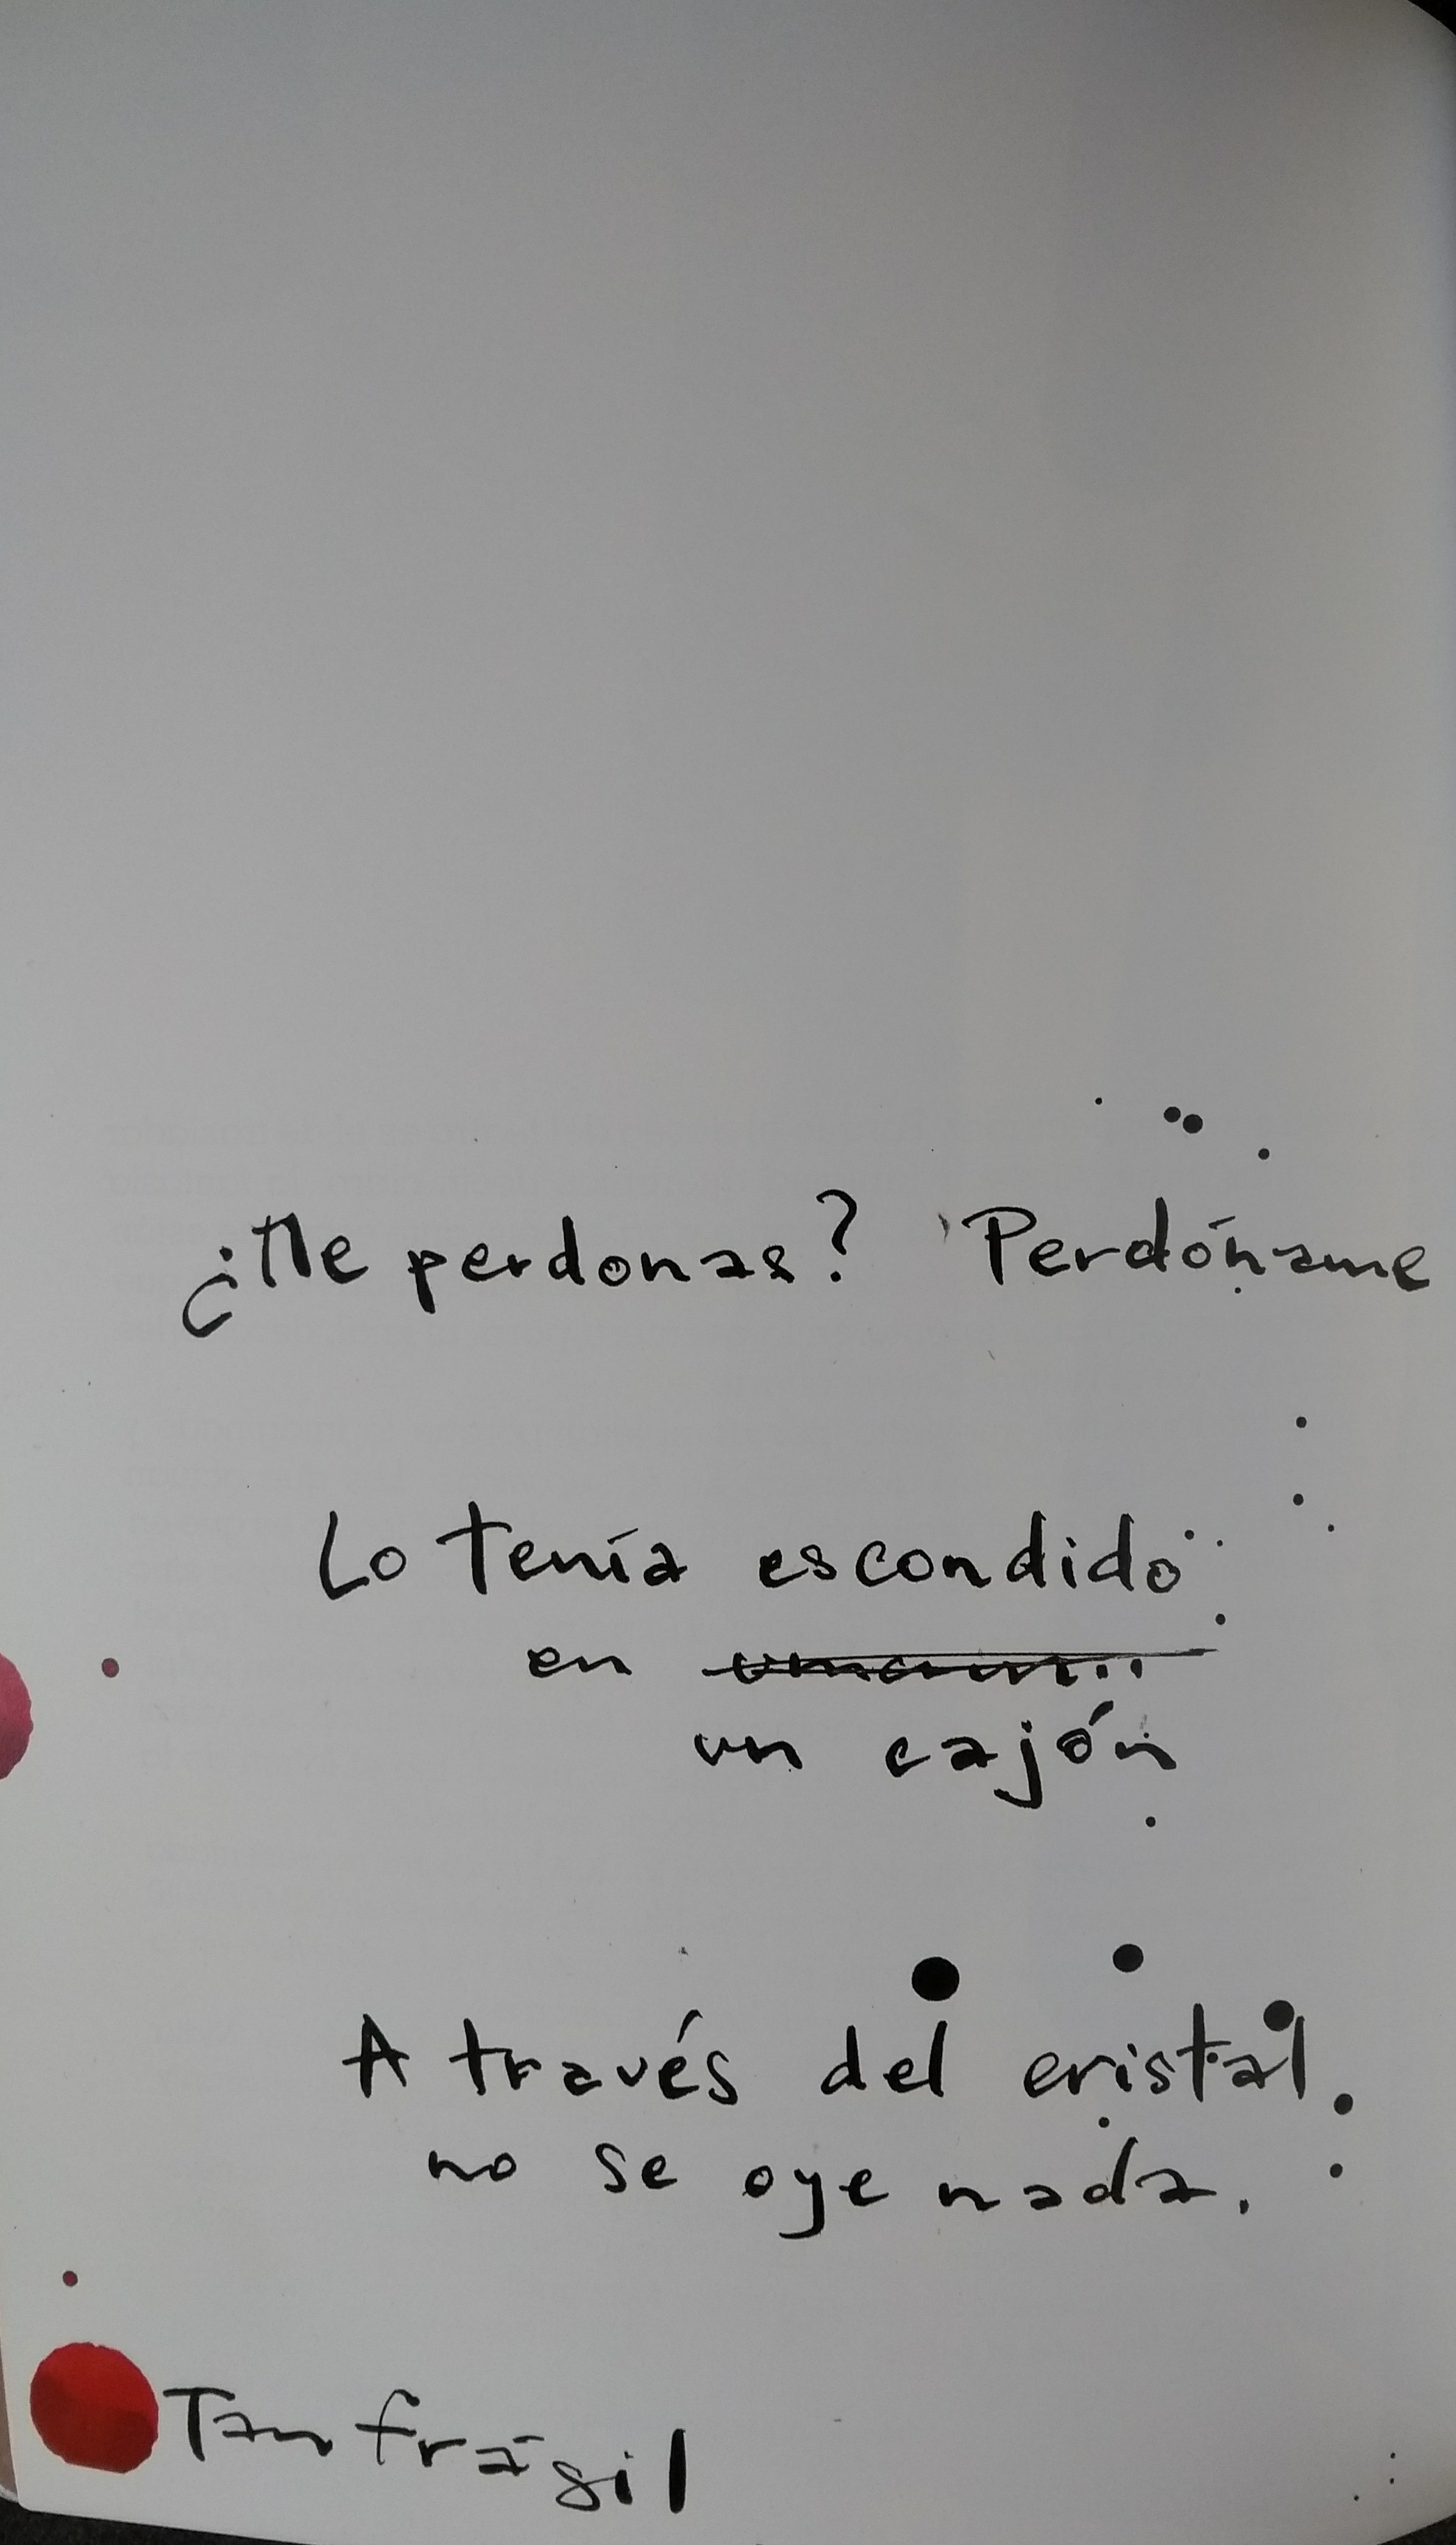 ¿Me perdonas? Perdóname
Lo tenía escondido
en
un cajón
A través del cristal
no se oye nada.
Tan frágil